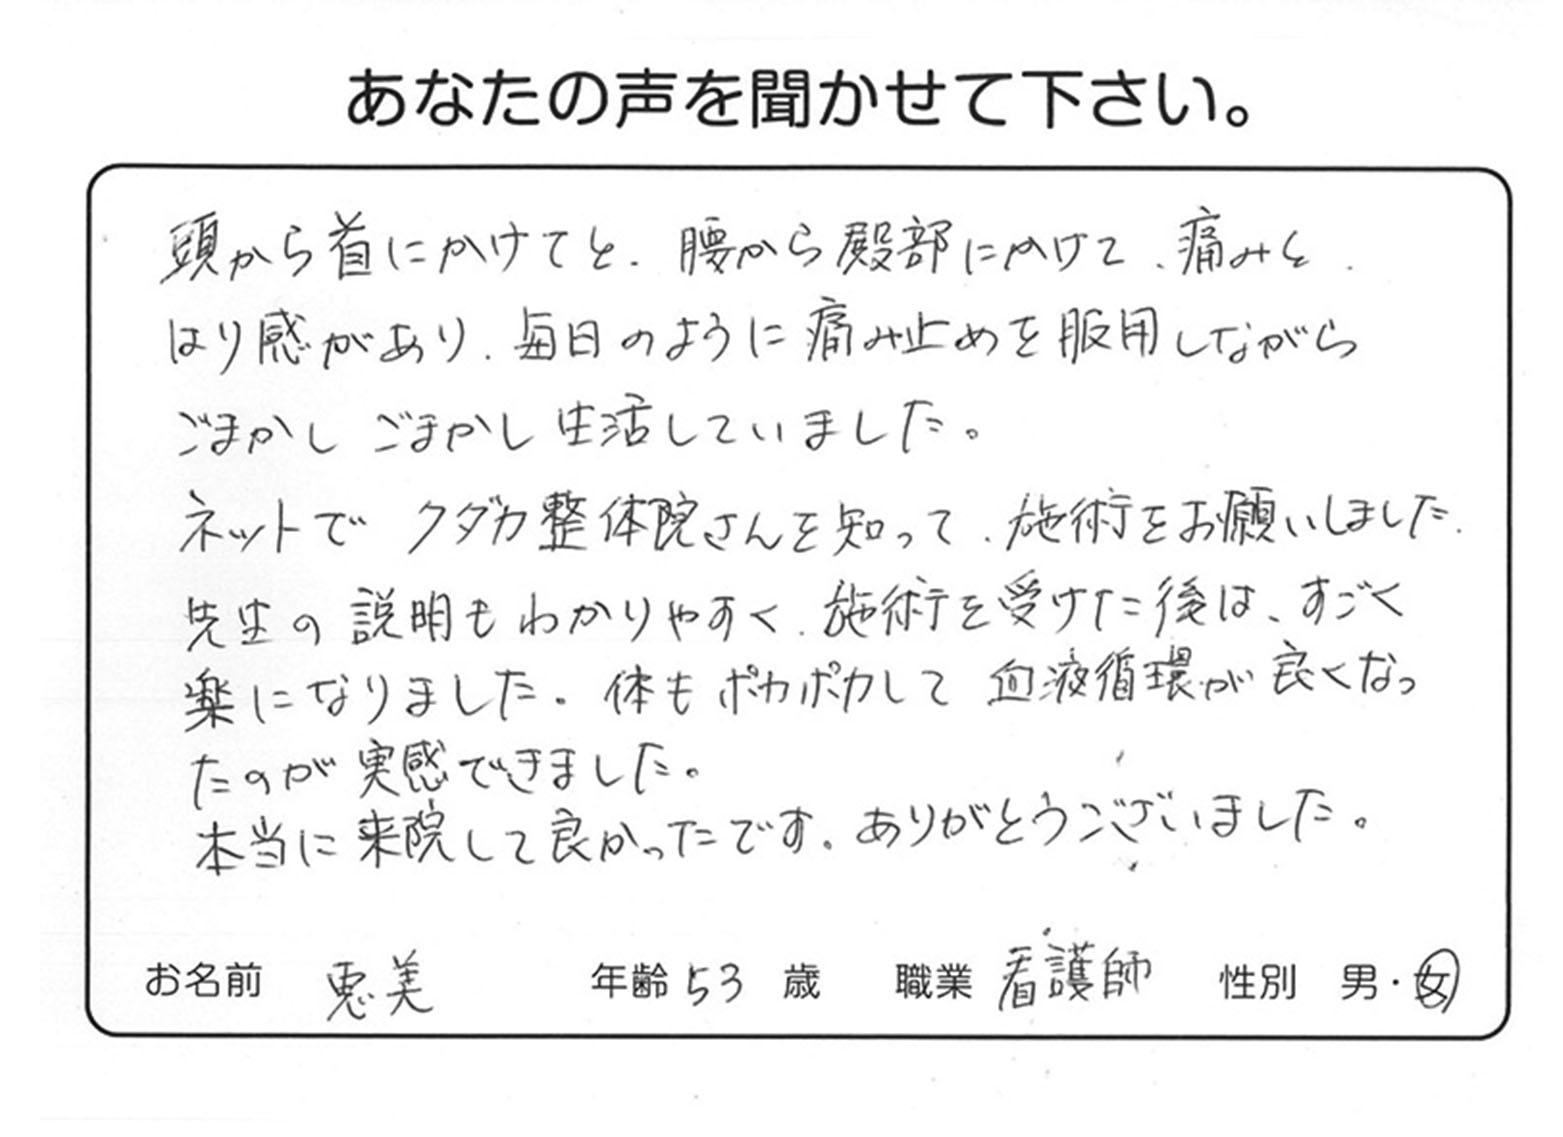 あなたの声を聞かせて下さい。
頭から首にかけてと、腰から臀部にかけて、痛みと、
はり感があり、毎日のように痛み止めを服用しながら
ごまかしごまかし生活していました。
ネットでクダカ整体院さんを知って、施術をお願いしました。
先生の説明もわかりやすく、施術を受けた後は、すごく
楽になりました。体もポカポカして血液循環が良くなっ
たのが実感できました。
本当に来院して良かったです。ありがとうございました。
お名前 恵美 年齢 53 歳 職業 看護師 性別 男・女